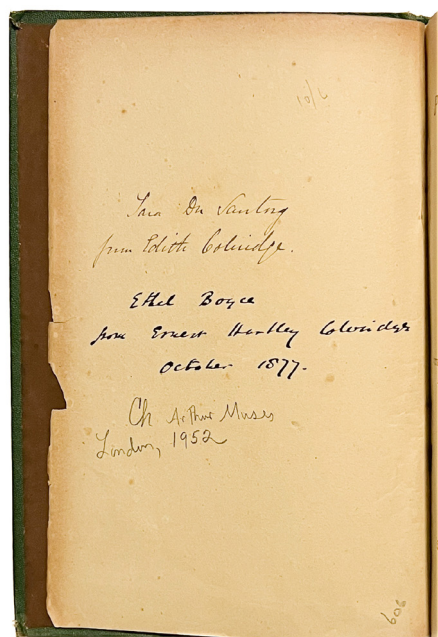 10/6
Sara De Santog
from Edith Coleridge.
Ethel Boyce
from Ernest Hartley Coleridge
October 1877.
Ch Arthur Muses
London, 1952
606